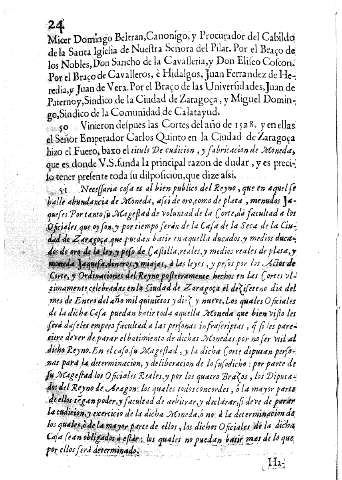 24
Micer Domingo Beltran, Canonigo, y Procurador del Cabildo
de la Santa Iglesia de Nuestra Señora del Pilar. Por el Braço de
los Nobles, Don Sancho de la Cavalleria, y Don Eliseo Coscon.
Por el Braço de Cavalleros, è Hidalgos, Juan Fernandez de He-
redia, y Juan de Vera. Por el Braço de las Universidades, Juan de
Paternoy, Sindico de la Ciudad de Zaragoça, y Miguel Domin-
go, Sindico de la Comunidad de Calatayud.
50 Vinieron despues las Cortes del año de 1528. y en ellas
el Señor Emperador Carlos Quinto en la Ciudad de Zaragoça
hizo el Fuero, baxo el titulo De cudicion, y fabricacion de Moneda,
que es donde V.S. funda la principal razon de dudar, y es preci-
so tener presente toda su disposicion, que dize assi.
51 Necessaria cosa es al bien publico del Reyno, que en aquel se
halle abundancia de Moneda, assi de oro, como de plata, menudos Ja-
queses Por tanto su Magestad de voluntad de la Corte, da facultad a los
Oficiales que oy son, y por tiempo seràn de la Casa de la Seca de la Ciu-
dad de Zaragoça que puedan batir en aquella ducados, y medios duca-
dos de oro de la ley, y peso de Castilla, reales, y medios reales de plata, y
moneda Jaquesa, dineros, y meajas, à las leyes, y pesos por los Actos de
Corte, y Ordinaciones del Reyno postreramente hechos en las Cortes vl-
timamente celebradas en la Ciudad de Zaragoça el dezisseteno dia del
mes de Enero del año mil quinientos y diez y nueve. Los quales Oficiales
de la dicha Casa puedan batir toda aquella Moneda que bien visto les
serà daseles empero facultad a las personas infrascriptas, q̃ si les pare-
ciere dever de parar el batimiento de dichas Monedas por no ser vtil al
dicho Reyno. En el caso su Magestad, y la dicha Corte diputan perso-
nas para la determinacion, y deliberacion de lo susodicho: por parte de
su Magestad los Oficiales Reales, y por los quatro Brazos, los Diputa-
dos del Reyno de Aragon: los quales todos concordes, ò la mayor parte
de ellos tengan poder, y facultad de arbitrar, y declarar, si deve de parar
la cudicion, y exercicio de la dicha Moneda, ò no à la determinacion de
los quales, ò de la mayor parte de ellos, los dichos Oficiales de la dicha
Casa sean obligados à estar: los quales no puedan batir mas de lo que
por ellos serà determinado.
Ha-